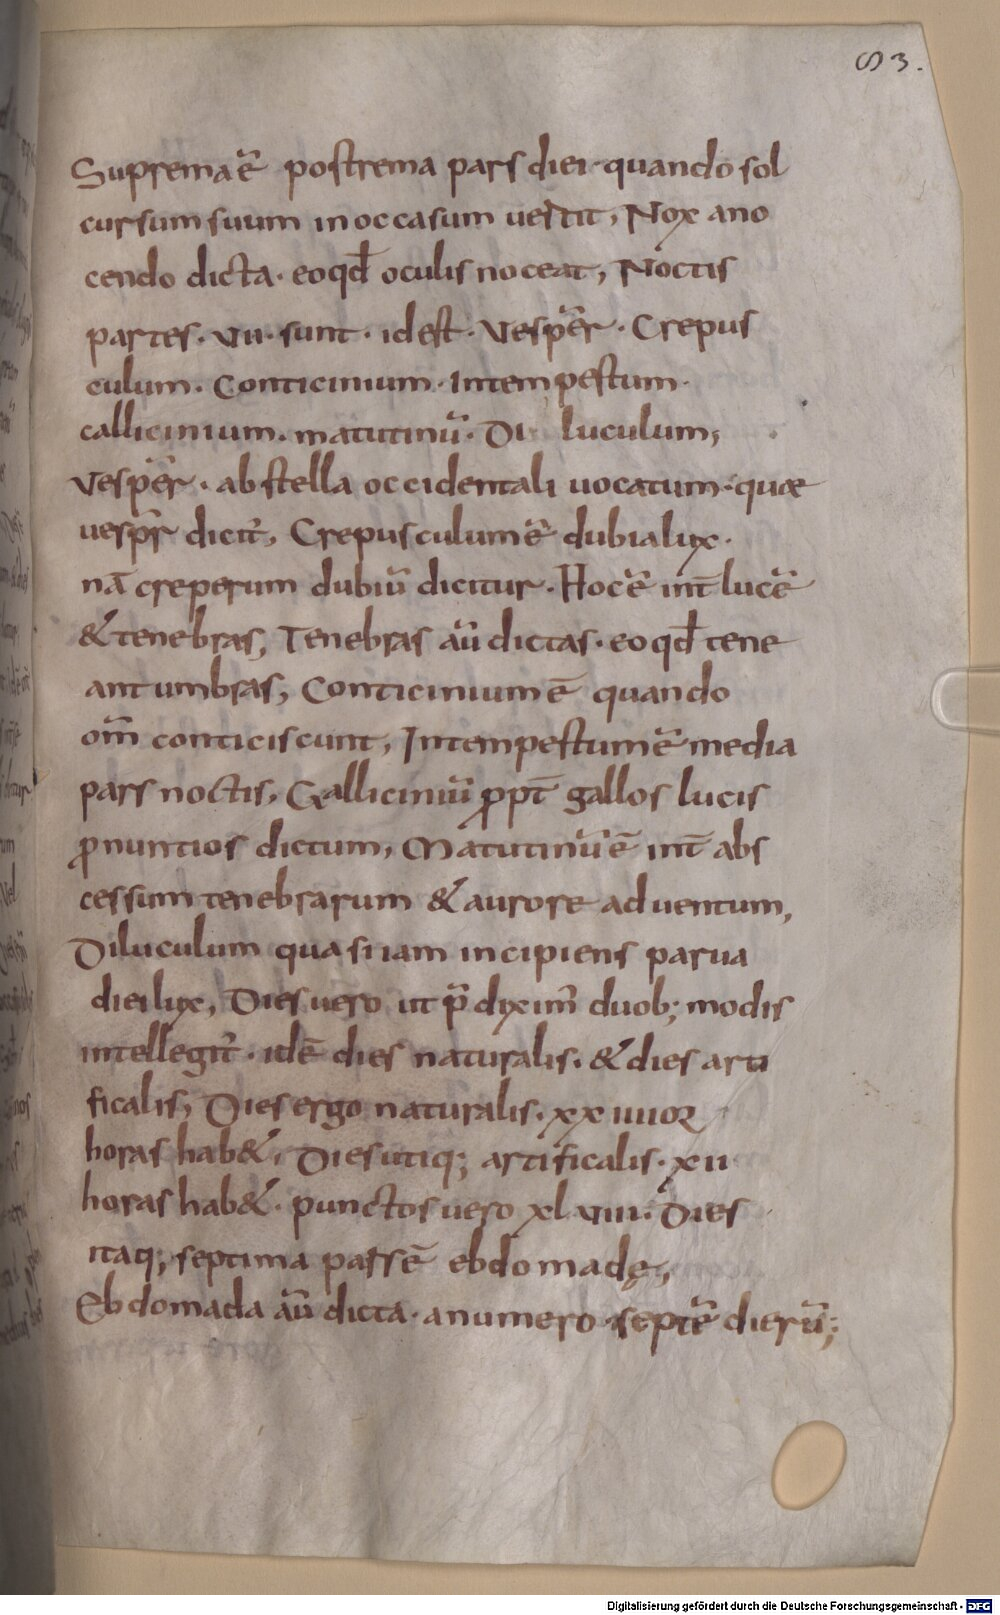 83.
Supremaē postrema pars diei· quando sol
cursum suum inoccasum uertit, Nox ano
cendo dicta· eoqđ oculis noceat, Noctis
partes· vii· sunt· idest· Vesper· Crepus
culum· Conticinium· Intempestum·
callicinium· matutinū· Di luculum;
Vesper· abstella occidentali uocatum· quae
uespr dicit, Crepusculumē dubialux·
nā creperum dubiū dicitur· Hocē int̄ lucē
& tenebras, Tenebras aū dictas· eoqđ tene
ant umbras, Conticiniumē quando
om̄ conticiscunt, Intempestumē media
pars noctis, Galliciniū ꝓpt̄ gallos lucis
ꝓnuntios dictum, Matutinūē int̄ abs
cessum tenebrarum & aurore aduentum,
Diluculum quasi iam incipiens parua
diei lux, Dies uero ut p̄ diximꝰ duob; modis
intellegit̄· idē dies naturalis· & dies arti
ficalis, Dies ergo naturalis· xx iiiior
horas hab&, Dies utiq; artificalis· xii
horas hab&· punctos uero xl viii· Dies
itaq; septima parsē ebdomadę,
Ebdomada aū dicta· anumero septē dierū;
Digitalisierung gefördert durch die Deutsche Forschungsgemeinschaft - DFG